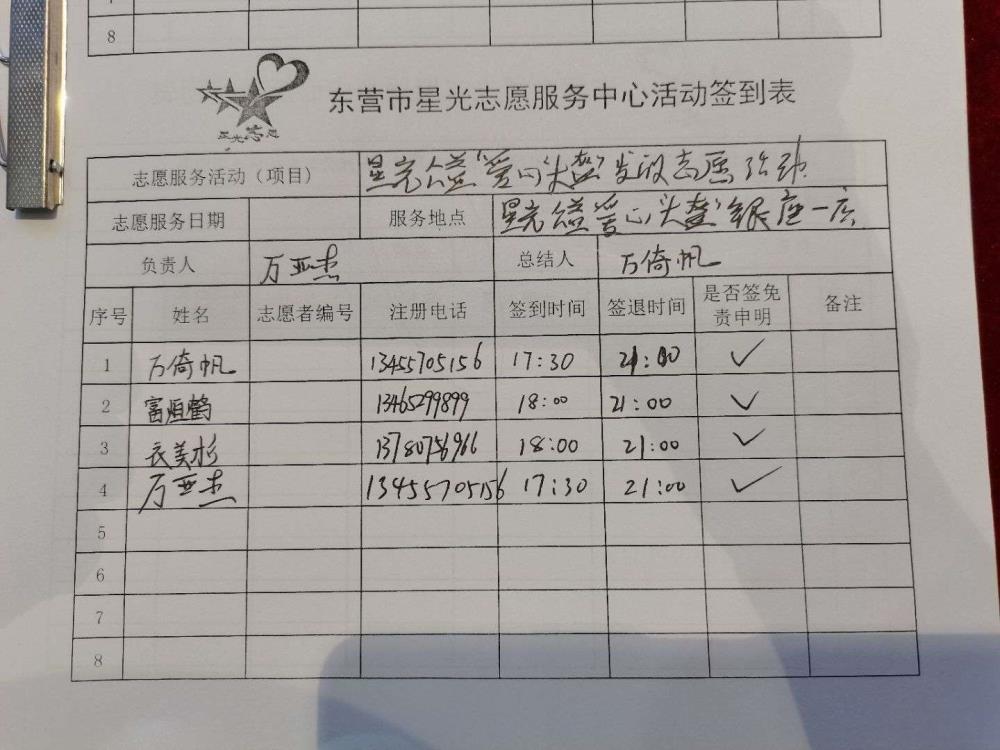 8
星光志愿
东营市星光志愿服务中心活动签到表
志愿服务活动（项目） 星光公益“爱心头盔”发放志愿活动
志愿服务日期 服务地点 星光公益“爱心头盔”银座一店
负责人 万亚杰 总结人 万倚帆
序号 姓名 志愿者编号 注册电话 签到时间 签退时间 是否签免责申明 备注
1 万倚帆 13455705156 17:30 21:00 ✓
2 富恒鹤 13465299899 18:00 21:00 ✓
3 衣美杉 13780756966 18:00 21:00 ✓
4 万亚杰 13455705156 17:30 21:00 ✓
5
6
7
8